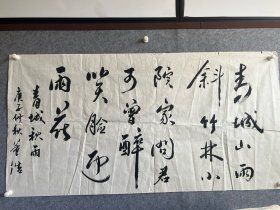 青城山雨
斜竹林小
院家问君
可曾醉
笑脸迎
雨花
青城秋雨
庚子仲秋董浩